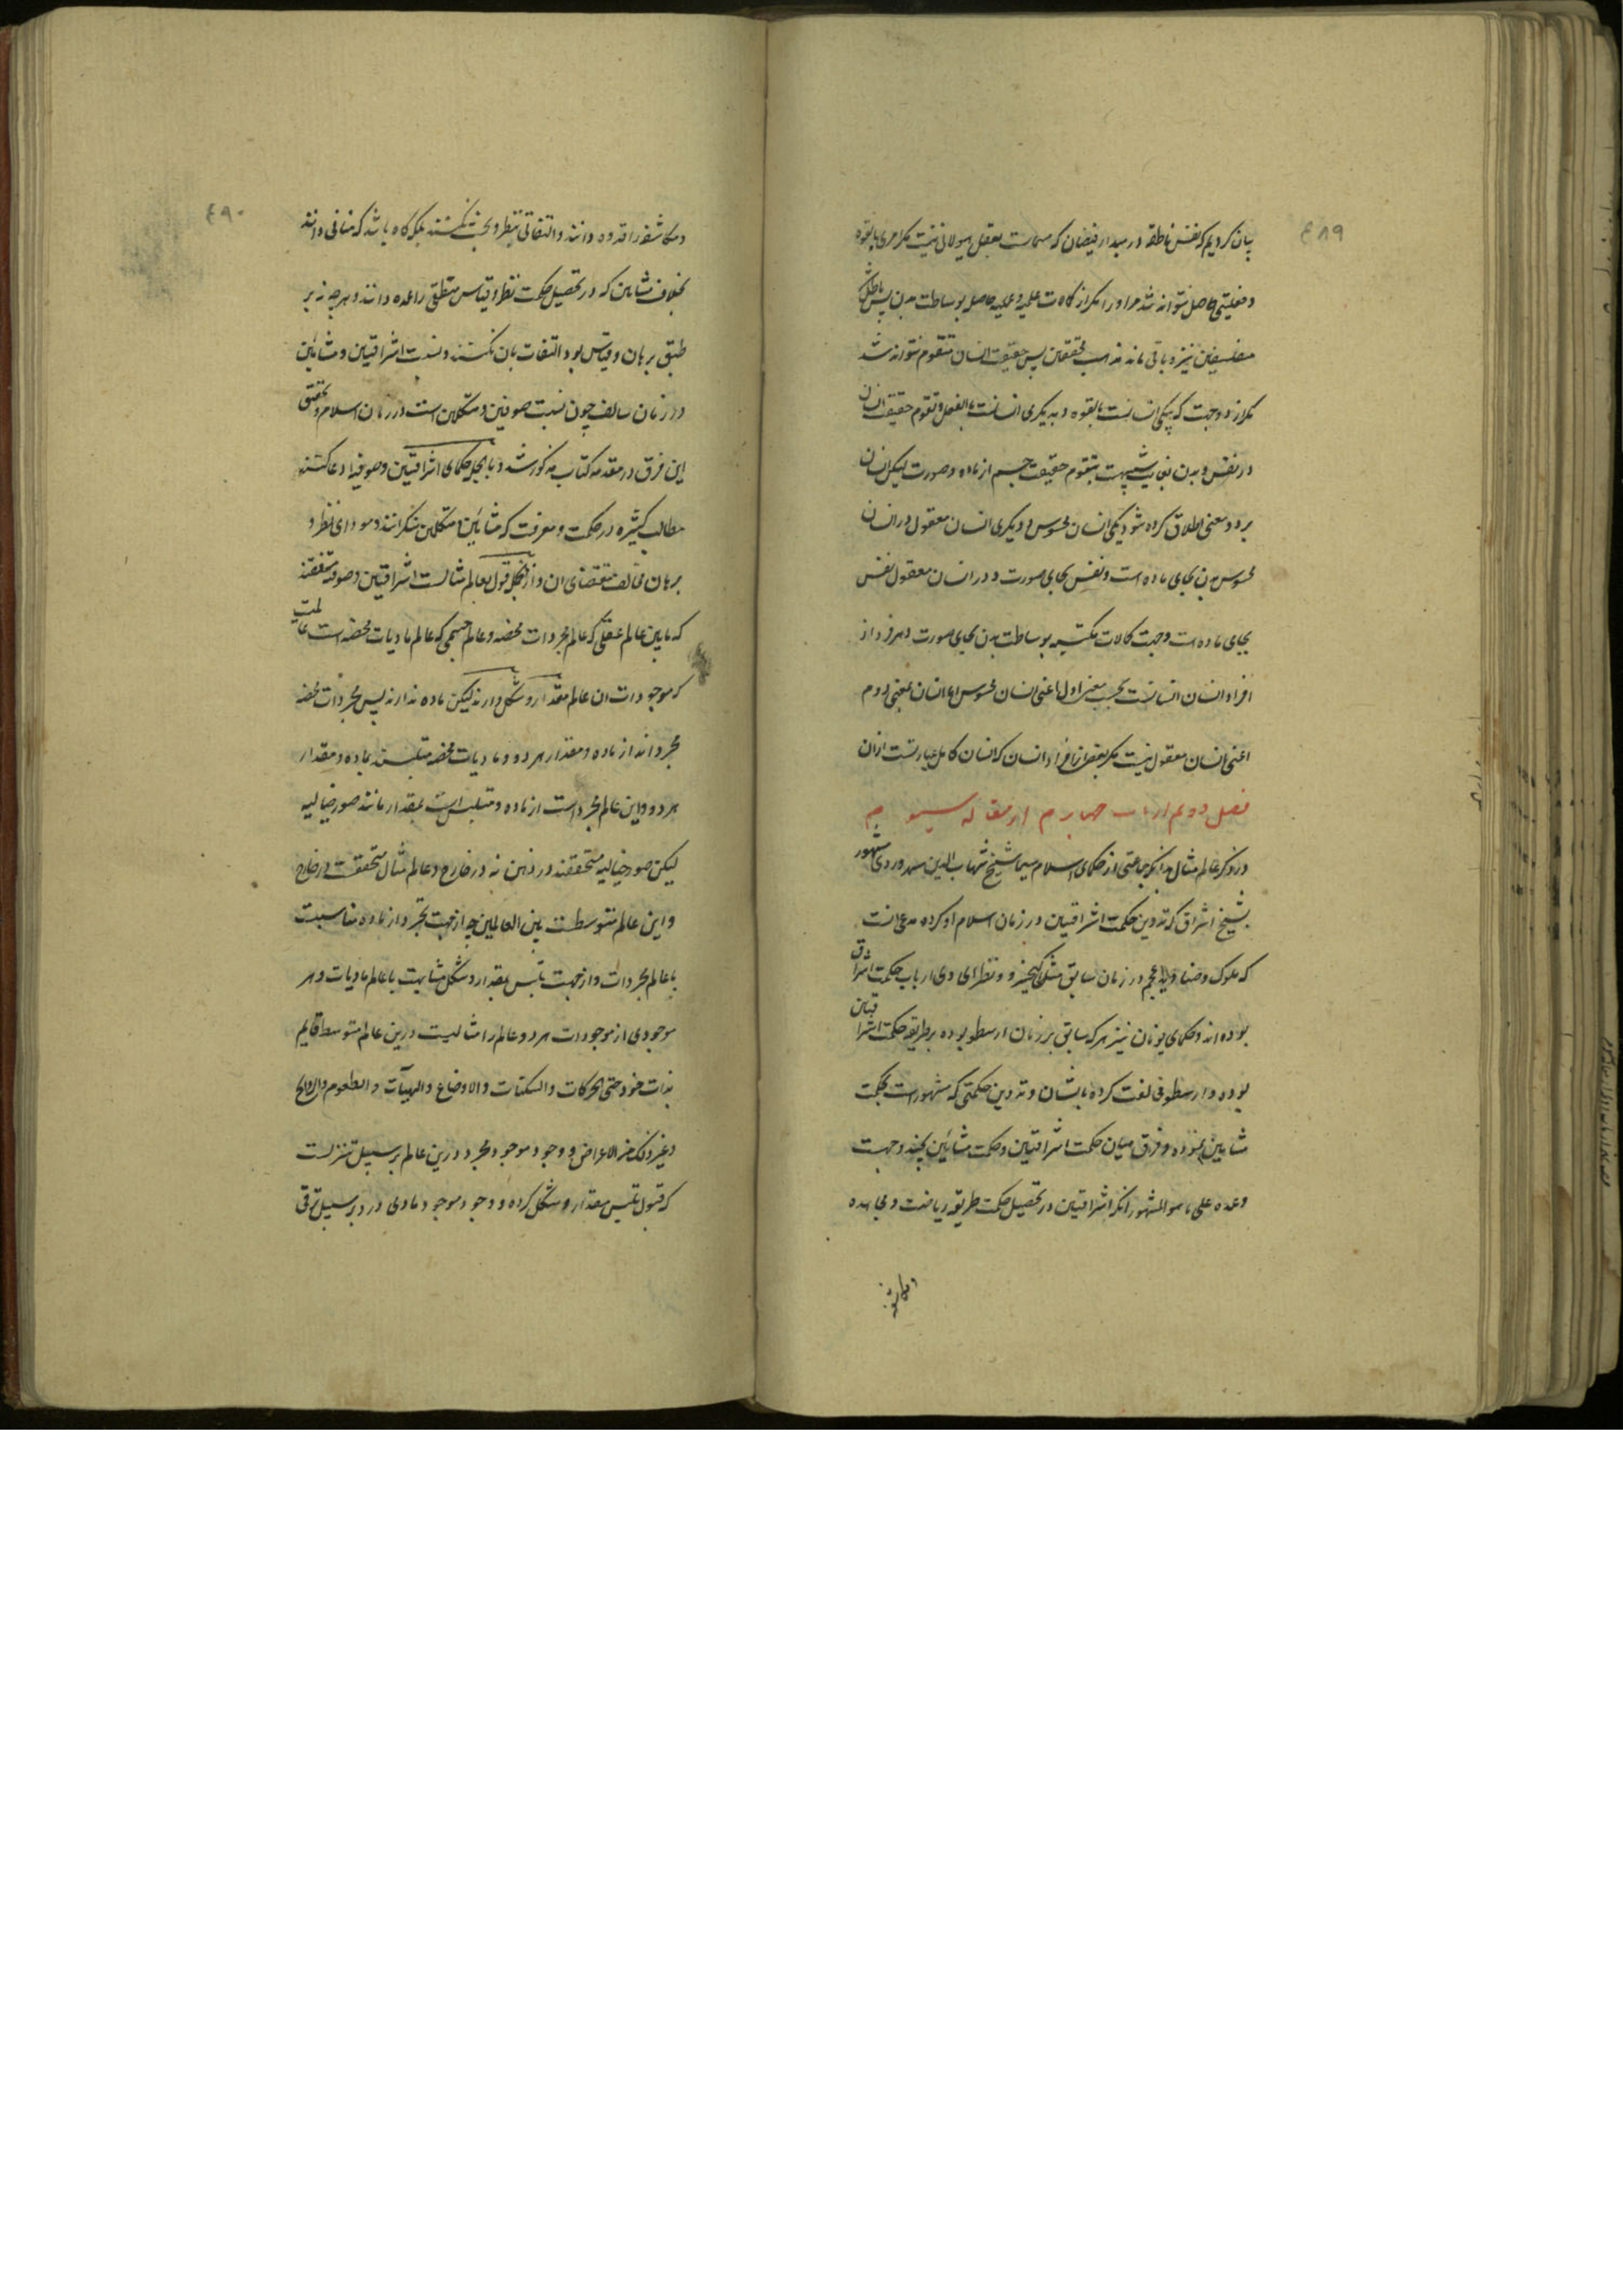 ۴۸۹
بیان کردیم که نفس ناطقه در مبداء فیضان که مسمات بعقل هیولانی نیست مکر امری بالقوه
و فعلیتی حاصل نتواند شد مر او را مکر از کالات علمیه و عملیه حاصل بوساطت بدن پس باطل شد
متفلسفین نیز و باقی ماند مذهب محققین پس حقیقت انسان متقوم نتواند شد
مکر از دو جهت که بیکی انسانست بالقوه و بدیکری انسانست بالفعل و تقوم حقیقت انسان
در نفس و بدن بغایت شبیهست بتقوم حقیقت جسم از ماده و صورت لیکن انسان
بر دو معنی اطلاق کرده شود یکی انسان محسوس و دیکری انسان معقول در انسان
محسوس بدن بجای ماده است و نفس بجای صورت و در انسان معقول نفس
بجای ماده است و جهت کالات مکتسبه بوساطت بدن بجای صورت و هر فرد از
افراد انسان انسانست بحسب معنی اول اعنی انسان محسوس اما انسان بمعنی دوم
اعنی انسان معقول نیست مکر بعض از افراد انسان که انسان کامل عبارتست ازان
فصل دوم از باب چهارم از مقاله سیوم
در ذکر عالم مثال بدانکه جماعتی از حکمای اسلام سیما شیخ شهاب الدین سهروردی مشهور
بشیخ اشراق که تدوین حکمت اشراقیین در زمان اسلام او کرده مدعی انست
که ملوک و صنادید عجم در زمان سابق مثل کیخسرو و نظرای وی ارباب حکمت اشراق
بوده اند و حکمای یونان نیز هر که سابق بر زمان ارسطو بوده بر طریقه حکمت اشراقیین
بوده و ارسطو مخالفت کرده بایشان و تدوین حکمتی که مشهور است بحکمت
مشایین نموده و فرق میان حکمت اشراقیین و حکمت مشائین بچند وجهست
و عمده علی ما هو المشهور انکه اشراقیین در تحصیل حکمت طریقه ریاضت و مجاهده
و مکاشفه
۴۹۰
و مکاشفه را قدوه دانند و التفاتی بنظر و بحث نکنند بلکه کاه باشد که منافی دانند
بخلاف مشایین که در تحصیل حکمت نظر و قیاس منطقی را عمده دانند و هر چه نه بر
طبق برهان و قیاس بود التفات بان نکنند و نسبت اشراقیین و مشائین
در زمان سالف چون نسبت صوفیین و متکلمین است در زمان اسلام و تحقیق
این فرق در مقدمه کتاب مذکور شد و بالجمله حکمای اشراقیین و صوفیه ادعا کنند
مطالب کثیره در حکمت و معرفت که مشائین و متکلمین منکرانند و مودای نظر و
برهان مخالف مقتضای ان و ازانجمله قول بعالم مثالست اشراقیین و صوفیه متفقند
که مابین عالم عقلی که عالم مجردات محضه و عالم جسمی که عالم مادیات محضه است عالمیست
که موجودات ان عالم مقدار و شکل دارند لیکن ماده ندارند پس مجردات محضه
مجردند از ماده و مقدار هر دو و مادیات محضه متلبسند بماده و مقدار
هر دو و این عالم مجرد است از ماده و متلبس است بمقدار مانند صور خیالیه
لیکن صور خیالیه متحققند در ذهن نه در خارج و عالم مثال متحققست در خارج
و این عالم متوسطست بین العالمین چه از جهت تجرد از ماده مناسبست
با عالم مجردات و از جهت تلبس بمقدار و شکل مشابهست با عالم مادیات و هر
موجودی از موجودات هر دو عالم را مثالیست درین عالم متوسط قایم
بذات خود حتی الحرکات و السکنات و الاوضاع و الهیآت و الطعوم و الروایح
و غیر ذلک من الاعراض و وجود موجود مجرد درین عالم بر سبیل تنزلست
که قبول تلبس بمقدار و شکل کرده و وجود موجود مادی در و بر سبیل ترقی